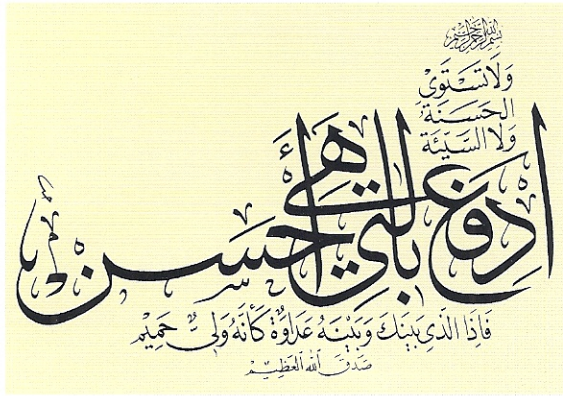 بسم الله الرحمن الرحيم
وَلَا تَسْتَوِى
الحَسَنَةُ
وَلَا السَّيِّئَة
اِدْفَعْ بِالَّتِى هِىَ أَحْسَن
فَاِذَا الَّذِى بَيْنَكَ وَبَيْنَهُ عَدَاوَةٌ كَأَنَّهُ وَلِىٌّ حَمِيْم
صَدَقَ اللهُ العَظِيْم